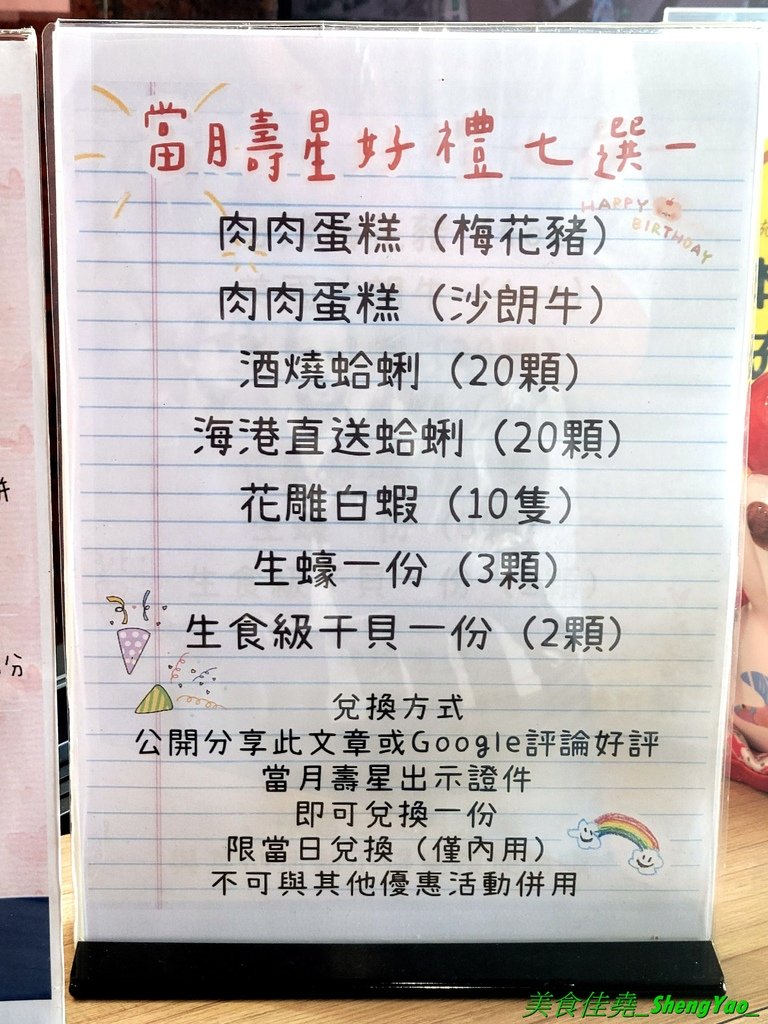 當月壽星好禮七選一
HAPPY
BIRTHDAY
肉肉蛋糕（梅花豬）
肉肉蛋糕（沙朗牛）
酒燒蛤蜊（20顆）
海港直送蛤蜊（20顆）
花雕白蝦（10隻）
生蠔一份（3顆）
生食級干貝一份（2顆）
兌換方式
公開分享此文章或Google評論好評
當月壽星出示證件
即可兌換一份
限當日兌換（僅內用）
不可與其他優惠活動併用
份
美食佳堯_ShengYao_